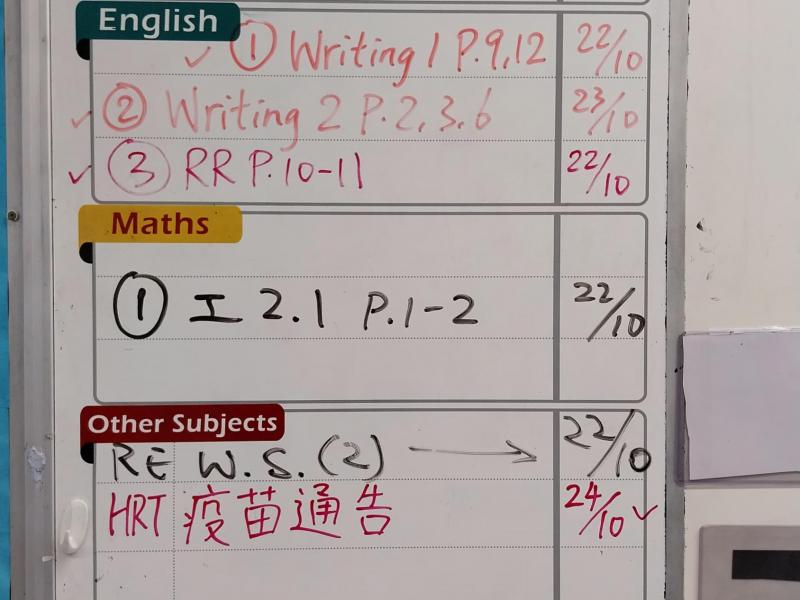 English
✓ ① Writing 1 P.9,12 22/10
✓ ② Writing 2 P.2,3,6 23/10
✓ ③ RR P.10-11 22/10
Maths
① 工 2.1 P.1-2 22/10
Other Subjects
RE W.S.(2) → 22/10
HRT 疫苗通告 24/10 ✓